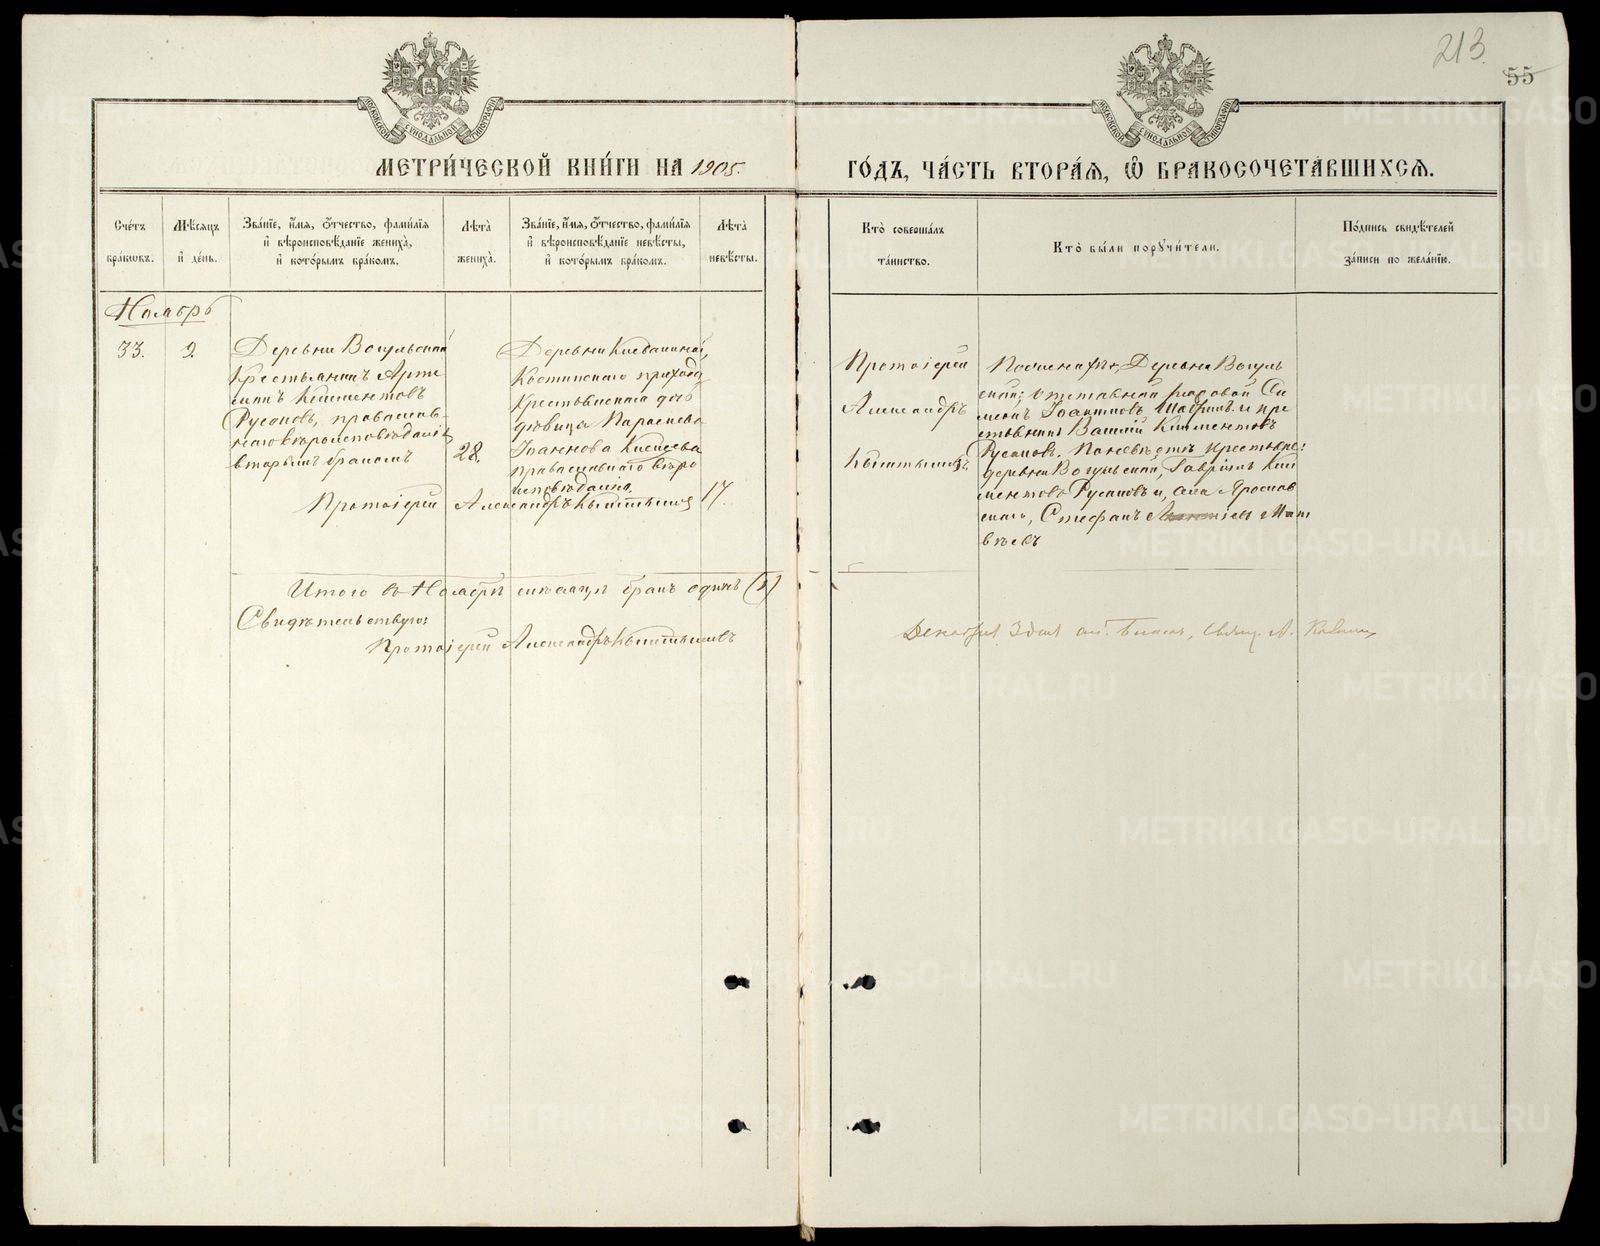 213.
55
МОСКОВСКОЙ СѴНОДАЛЬНОЙ ТИПОГРАФІИ
МОСКОВСКОЙ СѴНОДАЛЬНОЙ ТИПОГРАФІИ
МЕТРИ́ЧЕСКОЙ КНИ́ГИ НА 1905.
ГО́ДЪ, ЧА́СТЬ ВТОРА́Ѧ, Ѽ БРАКОСОЧЕТА́ВШИХСѦ.
Сче́тъ бра́кѡвъ.
Мѣ́сяцъ и́ де́нь.
Зва́нїе, и́мя, о́тчество, фами́лїя
и́ вѣроисповѣ́данїе жениха̀,
и́ кото́рымъ бра́комъ.
Лѣ́та жениха̀.
Зва́нїе, и́мя, о́тчество, фами́лїя
и́ вѣроисповѣ́данїе невѣ́сты,
и́ кото́рымъ бра́комъ.
Лѣ́та невѣ́сты.
Кто̀ соверша́лъ та́инство.
Кто̀ бы́ли поручи́тели.
По́дпись свидѣ́телей
за́писи по жела́нїю.
Ноябрь
33.
9.
Деревни Вогульской
Крестьянинъ Арте
Климентовъ
Русаковъ, православ-
наго вѣроисповѣданія
вторымъ бракомъ
28.
Деревни
Костинскаго прихода
Крестьянская до
дѣвица Параскева
Іоаннова
православнаго вѣро
исповѣданія.
17.
Протоіерей Александръ
Протоіерей
Александръ
По женихѣ, Деревни Вогуль
ской; отставной рядовой Си
меонъ Іоанновъ и кре
стьянинъ Василій Климентовъ
Русаковъ. По невѣстѣ крестьяне:
деревни Вогульской, Гавріилъ Кли
ментовъ Русаковъ и, села Ярослав
скаго, Стефанъ Мат
вѣевъ
Итого въ Ноябрѣ мѣсяцѣ бракъ одинъ (1)
Свидѣтельствую:
Протоіерей Александръ
Декабря 3 дня
METRIKI.GASO-URAL.RU